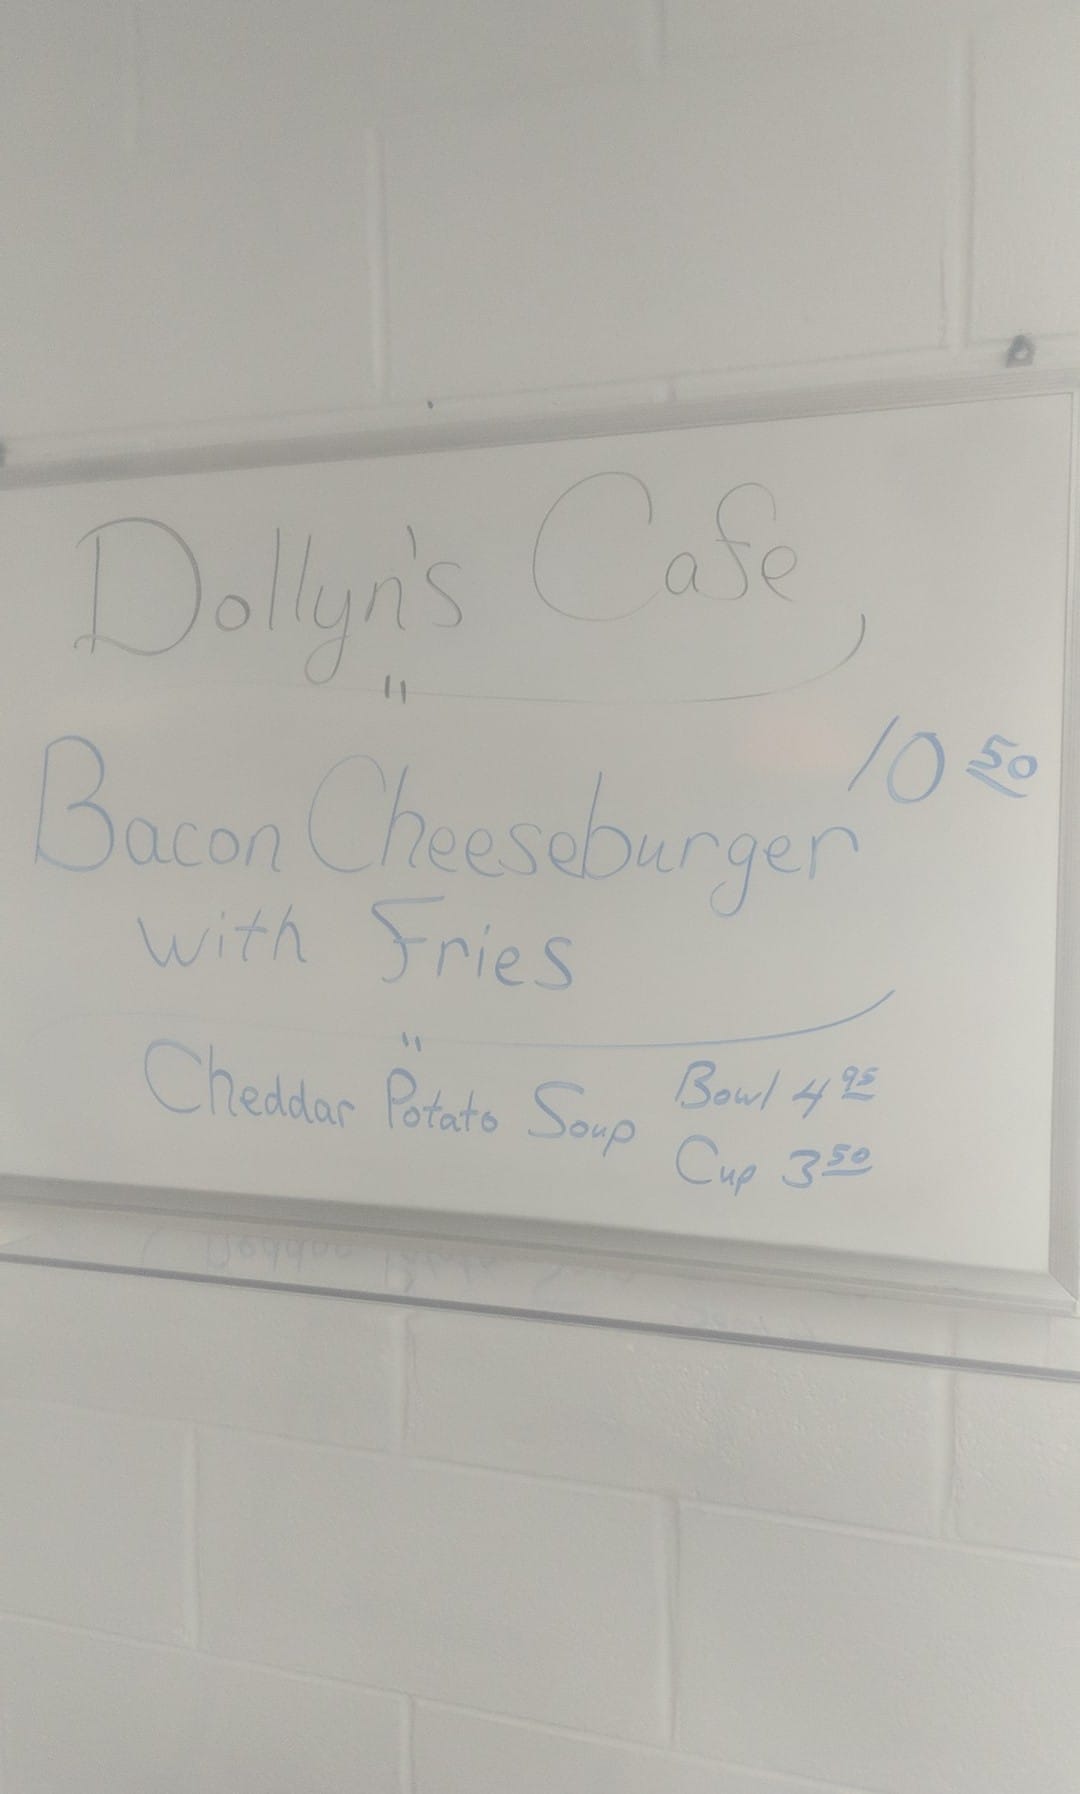 Dollyn's Cafe
10 50
Bacon Cheeseburger
with Fries
Cheddar Potato Soup Bowl 4 95
Cup 3 50